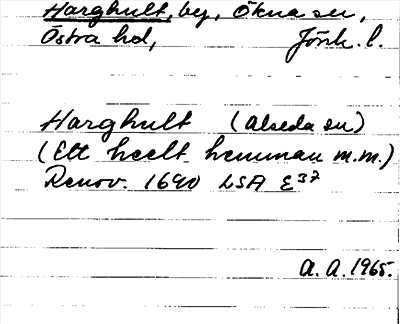 Harghult, by, Ökna sn,
Östra hd, Jönk. l.
Harghult (Alseda sn)
(Ett heelt hemman m.m.)
Renov. 1690 LSA E37
A. A. 1965.